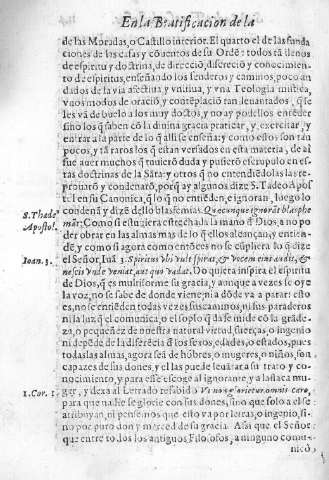 En la Beatificacion de la
de las Moradas, o Castillo interior. El quarto el de las funda
ciones de las casas y cõuentos de su Ordē: todos ellos llenos
de espiritu y doctrina, de direcciõ, discreciõ y conocimien-
to de espiritus, enseñando los senderos y caminos, poco an
dados de la via afectiua y vnitiua, y vna Teologia mistica,
vnos modos de oraciõ, y contēplaciõ tan leuantados, q̃ se
les và de buelo a los muy doctos, y no ay podellos entēder
sino los q̃ saben cõ la diuina gracia praticar, y, exercitar, y
entrar a la parte de lo q̃ alli se enseña: y como estos son tan
pocos, y tã raros los q̃ estan versados en esta materia, de ai
fue auer muchos q̃ tuuierõ duda y pusierõ escrupulo en es
tas doctrinas de la Sãta: y otros q̃ no entendiēdo las las re-
prouarõ y condenarõ, porq̃ ay algunos dize S. Tadeo Apos
S. Thade
tol en su Canonica, q̃ lo q̃ no entienden, e ignoran, luego lo
Apostol.
condenã y dizē dello blasfemias. Quæcunque ignorãt blasphe
mãt: Como si estuuiera estrechada la mano de Dios, a no po
der obrar en las almas mas de lo q̃ ellos alcançan, y entiē-
de, y como si agora como entõces no se cũpliera lo q̃ dize
Ioan. 3.
el Señor, Iuã 3. Spiritus vbi vult spirat, & vocem eius audis, &
nescis vnde veniat, aut quo vadat. Do quiera inspira el espiritu
de Dios, q̃ es multiforme su gracia, y aunque a vezes se oye
la voz, no se sabe de donde viene, ni a dõde va a parar: esto
es, no se entiēden todas vezes sus caminos, ni sus paraderos
ni la luz q̃ el comunica, o el soplo q̃ da se mide cõ la grãde-
za, o pequeñez de nuestra natural virtud, fuerças, o ingenio
ni depēde de la diferēcia de los sexos, edades, o estados, pues
todas las almas, agora seã de hõbres, o mugeres, o niños, son
capazes de sus dones, y el las puede leuãtar a su trato y co-
nocimiento, y para esse escoge al ignorante, y a la flaca mu-
1. Cor. 1.
ger, y dexa al Letrado resabido Vt non glorietur omnis caro,
para que nadie se glorie con sus dones, sino que solo a el se
atribuyan, ni pensemos que esto va por letras, o ingenio, si-
no por puro don y merced de su gracia. Assi que el Señor
que entre todos los antiguos Filosofos, a ninguno comu-
nicò,